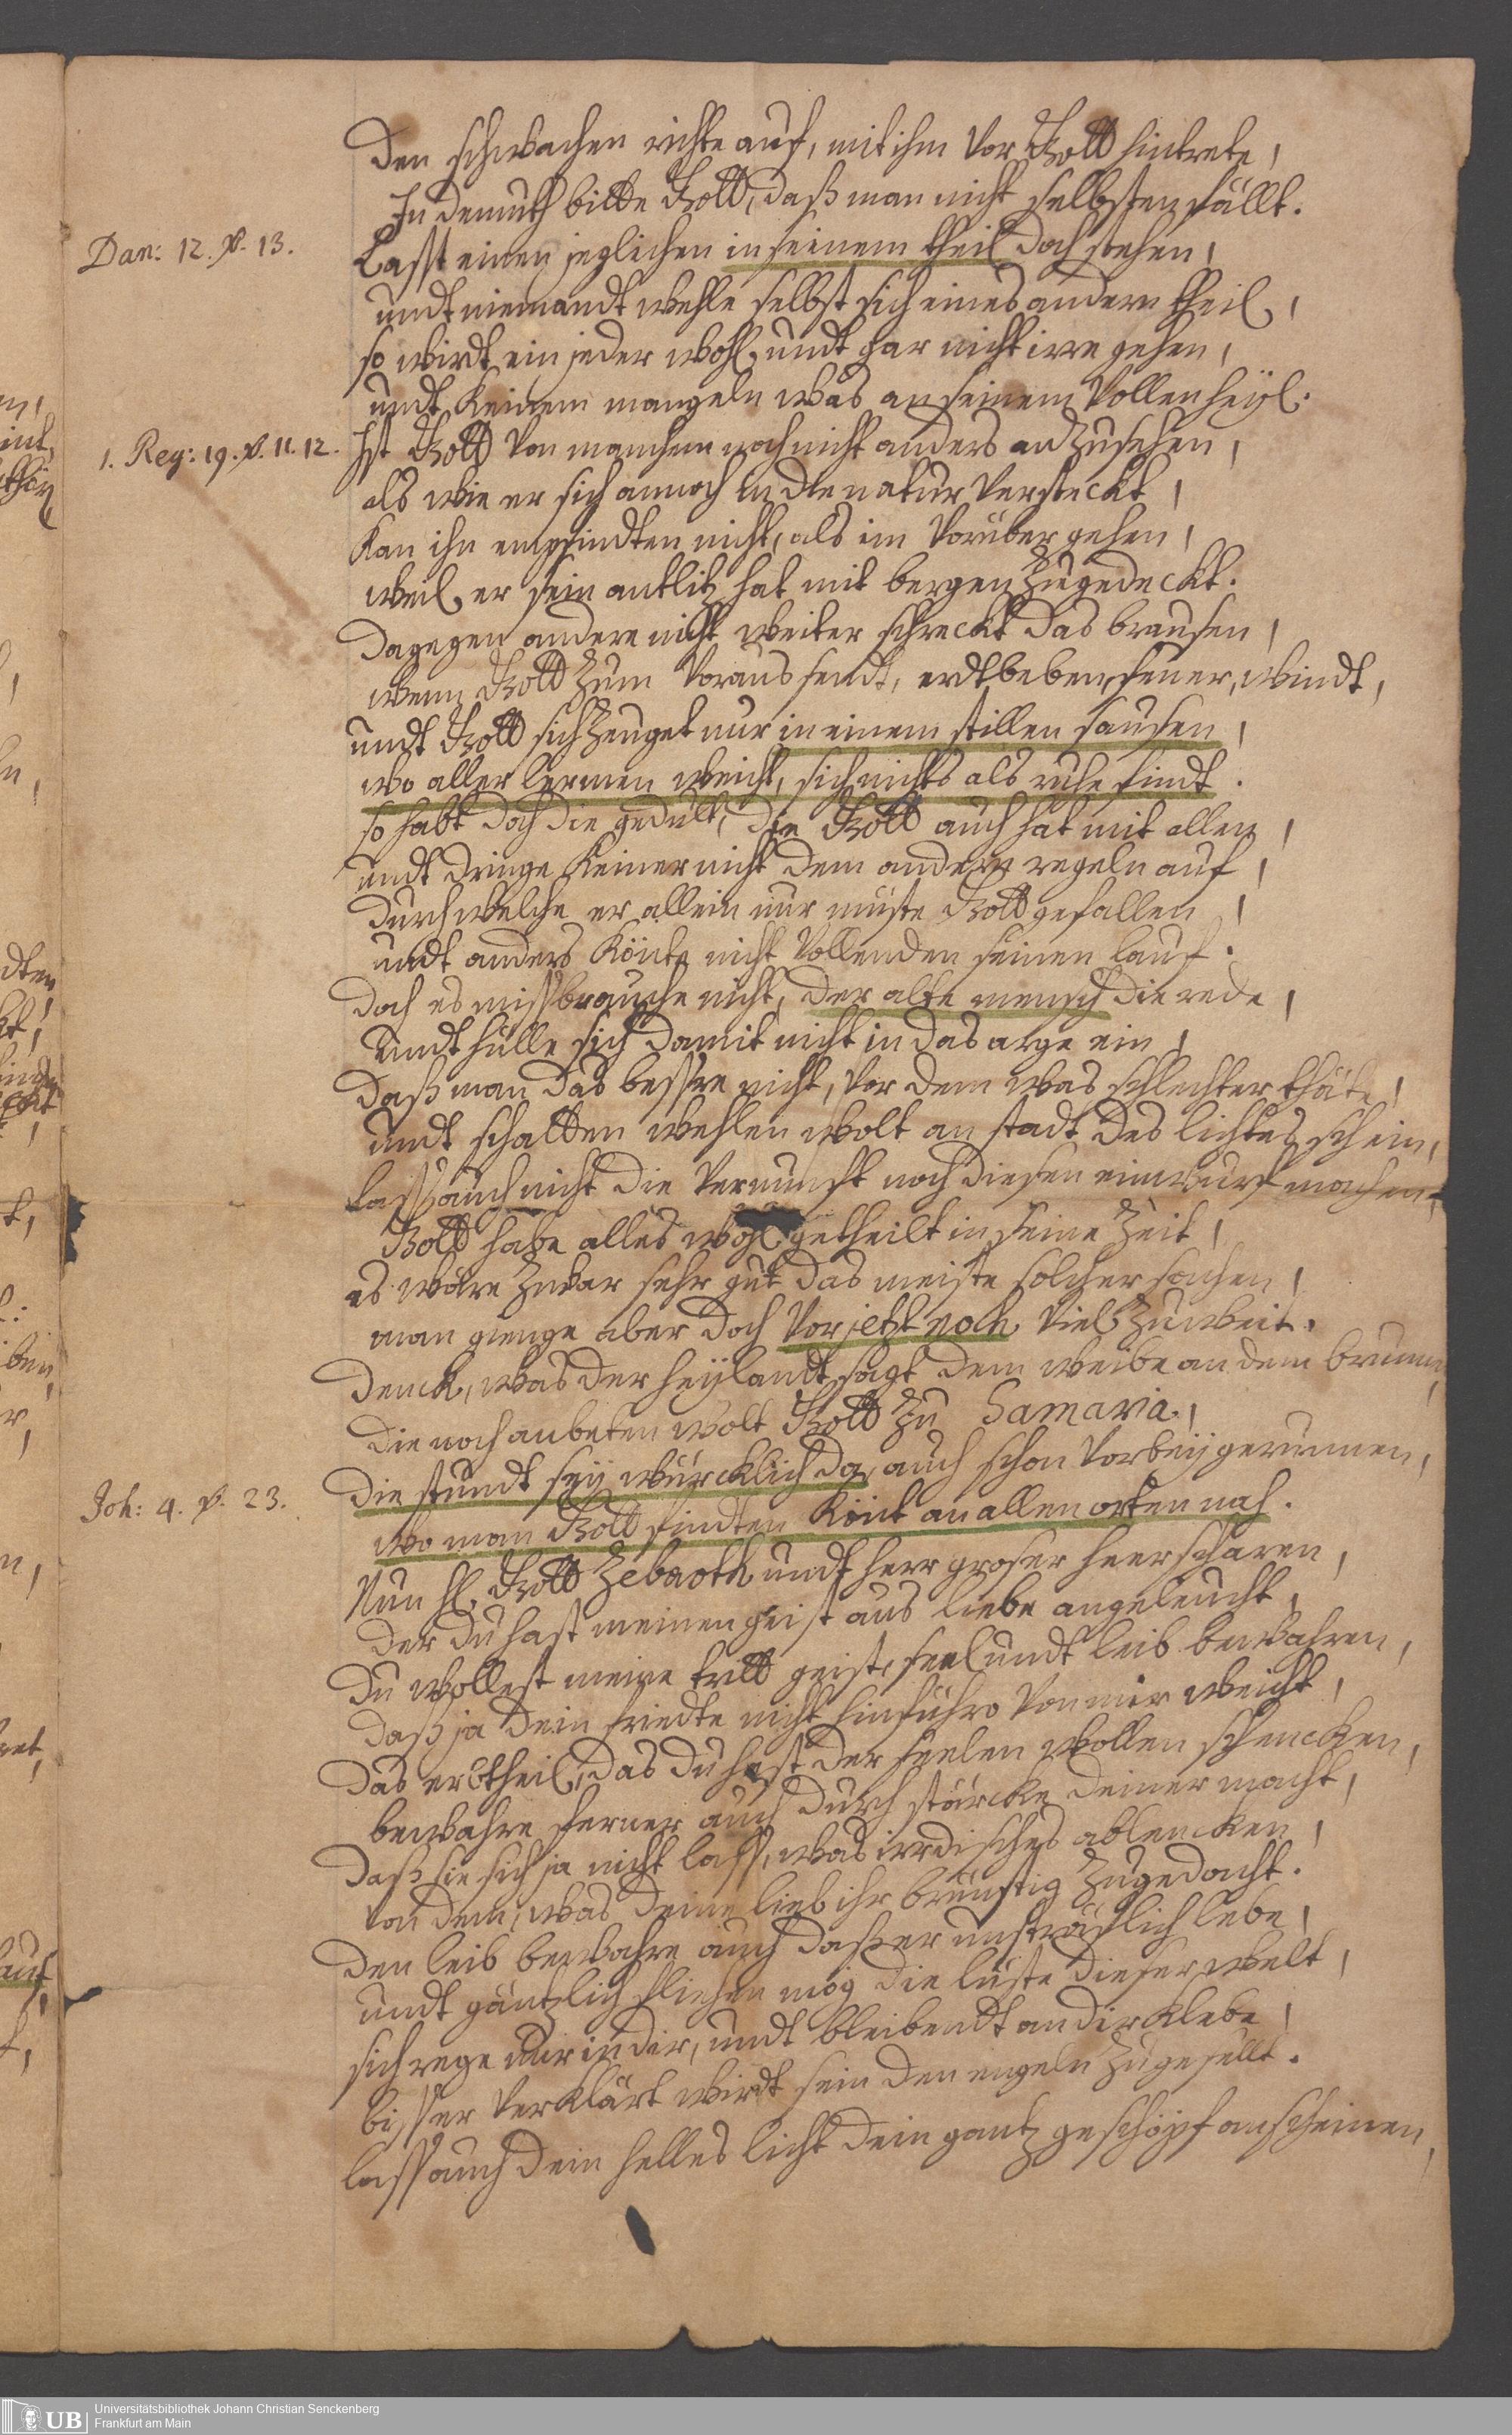 Den schwachen richte auf, mit ihm vor Gott hintrete,
In demuth bitte Gott, daß man nicht selbsten fällt.
Dan: 12. v. 13.
Lasst einen jeglichen in seinem theil doch stehen,
undt niemandt wehle selbst sich eines andern theil,
so wirdt ein jeder wohl, undt gar nicht irre gehen,
undt keinem mangeln was an seinem vollen heyl.
1. Reg: 19. v. 11. 12.
Ist Gott von manchem noch nicht anders anzusehen,
als wie er sich annoch in die natur versteckt,
Kan ihn empfindten nicht, als im vorübergehen,
weil er sein antlitz hat mit bergen zugedeckt.
Dagegen andere nicht weiter schreckt das brausen,
wenn Gott zum voraus sendt, erdtbeben, feuer, windt,
undt Gott sich zeuget nur in einem stillen sausen,
wo aller lermen weicht, sich nichts als ruhe findt.
so habt doch die gedult, die Gott auch hat mit allen,
undt dringe keiner nicht dem andern regeln auf,
durch welche er allein nur müste Gott gefallen,
undt anders könte nicht vollenden seinen lauf.
Doch es missbrauche nicht, der alte mensch die rede,
undt hülle sich damit nicht in das arge ein,
Daß man das bessre nicht, vor dem was schlechter thäte,
undt schatten wehlen wolt an stadt des lichtes schein,
lass auch nicht die vernunft noch diesen einwurf machen,
Gott habe alles wohl getheilt in seine zeit,
es wäre zwar sehr gut das meiste solcher sachen,
man gienge aber doch vor jetzt noch viel zu weit.
Denck, was der heylandt sagt dem weibe an dem brunn,
die noch anbeten wolt Gott zu Samaria,
Die stundt sey würcklich da, auch schon vorbey gerunnen,
Joh: 4. v. 23.
wo man Gott findten könt an allen orten nah.
Nun hl. Gott Zebaoth undt herr groser heerscharen,
Der du hast meinen geist aus liebe angeleucht,
Du wollest meine tritt geist, seel undt leib bewahren,
daß ja dein friedte nicht hinführo von mir weicht,
Das erbtheil, das du hast der seelen wollen schencken,
bewahre ferner auch durch stärcke deiner macht,
daß sie sich ja nicht lass, was irrdisches ablencken,
von dem, was deine lieb ihr brünstig zugedacht.
Den leib bewahre auch daß er unsträflich lebe,
undt gäntzlich fliehen mög die lüste dieser welt,
sich rege nur in dir, undt bleibendt an dir klebe,
biss er verklärt wirdt sein den engeln zugesellt.
lass auch dein helles licht dein gantz geschöpf anscheinen,
Universitätsbibliothek Johann Christian Senckenberg
Frankfurt am Main
UB